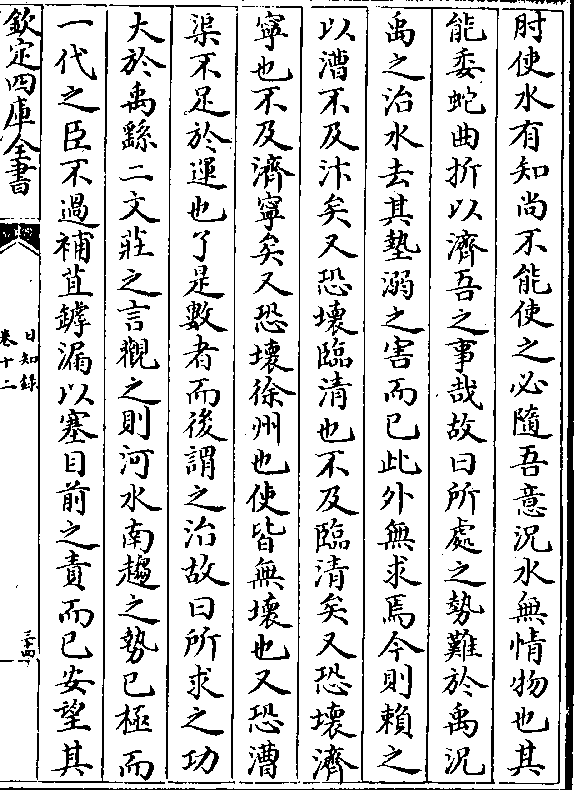 肘使水有知尚不能使之必隨吾意況水無情物也其
能委蛇曲折以濟吾之事哉故曰所處之勢難於禹況
禹之治水去其墊溺之害而已此外無求焉今則賴之
以漕不及汴矣又恐壞臨清也不及臨清矣又恐壞濟
寧也不及濟寧矣又恐壞徐州也使皆無壞也又恐漕
渠不足於運也了是數者而後謂之治故曰所求之功
大於禹繇二文莊之言觀之則河水南趨之勢已極而
一代之臣不過補苴罅漏以塞目前之責而已安望其
欽定四庫全書
日知錄
卷十二
三十四